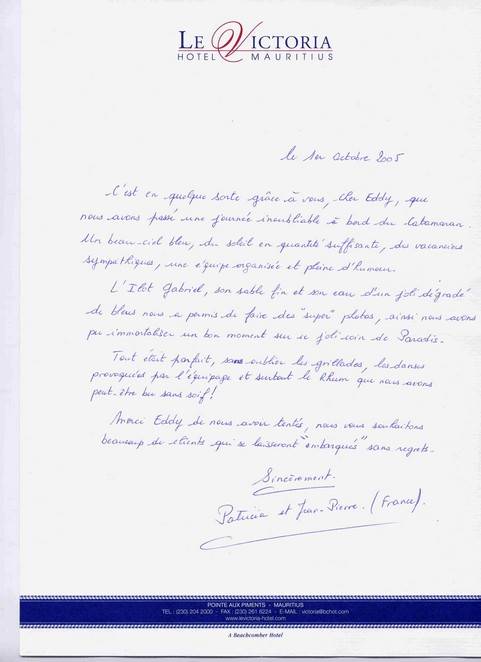 LE VICTORIA
HOTEL MAURITIUS
le 1er Octobre 2005
C'est en quelque sorte grâce à vous, cher Eddy, que
nous avons passé une journée inoubliable à bord du Catamaran.
Un beau ciel bleu, du soleil en quantité suffisante, des vacanciers
sympathiques, une équipe organisée et pleine d'humour.
L'Ilot Gabriel, son sable fin et son eau d'un joli dégradé
de bleus nous a permis de faire des "super" photos, ainsi nous avons
pu immortaliser un bon moment sur ce joli coin de Paradis.
Tout était parfait, sans oublier les grillades, les danses
provoquées par l'équipage et surtout le Rhum que nous avons
peut-être bu sans soif!
Merci Eddy de nous avoir tentés, nous vous souhaitons
beaucoup de clients qui se laisseront "embarqués" sans regrets.
Sincèrement.
Patricia et Jean-Pierre. (France).
POINTE AUX PIMENTS - MAURITIUS
TEL : (230) 204 2000 - FAX : (230) 261 8224 - E-MAIL : victoria@bchot.com
www.levictoria-hotel.com
A Beachcomber Hotel